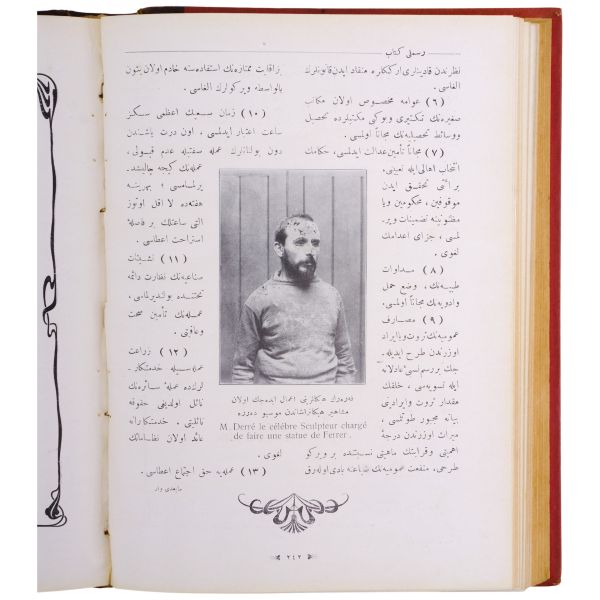 رسملی كتاب
نظرندن قادینلری ارككلره منقاد ایدن قانونلرك
الغاسی .
(٦) عوامه مخصوص اولان مكاتب
صغیره‌نك تكثیری وبوكبی مكتبلرده تحصیل
ووسائط تحصیلیه‌نك مجاناً اولمسی .
(٧) مجاناً تأمین عدالت ایدلمسی ، حكامك
انتخاب اهالی ایله تعیینی ،
برائتی تحقق ایدن
موقوفین ، محكومین ویا
مظنونینه تضمینات ویر-
لمسی ، جزای اعدامك
لغوی .
(٨) مداوات
طبیه‌نك ، وضع حمل
وادویه‌نك مجاناً اولمسی .
(٩) مصارف
عمومیه‌نك ثروت ویا ایراد
اوزرندن طرح ایدیله-
جك بر عادلانه
ایله تسویه‌سی ، خلقك
مقدار ثروت وایرادینی
بیانه مجبور طوتلمسی ،
میراث اوزرندن درجهٔ
اهمیتی وقرابتك ماهیتی نسبتنده بر ویركو
طرحی ، منفعت عمومیه‌نك بادی اوله‌رق
بر اقلیت ممتازه‌نك استفاده‌سنه خادم اولان بتون
بالواسطه ویركولرك الغاسی .
(١٠) زمان سعیك اعظمی سكز
ساعت اعتبار ایدلمسی ، اون درت یاشندن
دون بولنانلرك عمله صفتیله عدم قبولی ،
عمله‌نك كیجه چالیشد-
یرلمامسی ؛ بهرینه
هفته‌ده لا اقل اوتوز
التی ساعتلك بر فاصلهٔ
استراحت اعطاسی .
(١١) تشبثات
صناعیه‌نك نظارت دائمه
تحتنده بولندیرلماسی ،
عمله‌نك تأمین صحت
وعافیتی .
(١٢) زراعت
عمله‌سیله خدمتكار-
لرلده عملهٔ سائره‌نك
نائل اولدیغی حقوقه
نائلیتی ، خدمتكارانه
عائد اولان نظاماتك
لغوی .
(١٣) عمله‌یه حق اجتماع اعطاسی .
مابعدی وار
فه‌ره‌رك هیكلنی اعمال ایده‌جك اولان
مشاهیر هیكلتراشاندن موسیو ده‌رره
M. Derré le célèbre Sculpteur chargé
de faire une statue de Ferrer.
٢٤٢